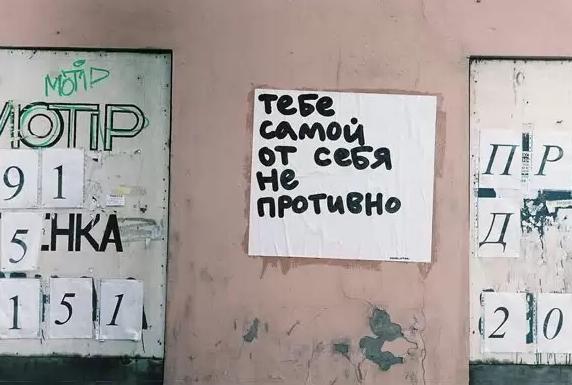 мотір
МОТІР
91
5
ЕНКА
151
тебе
самой
от себя
не
противно
ПР
Д
20